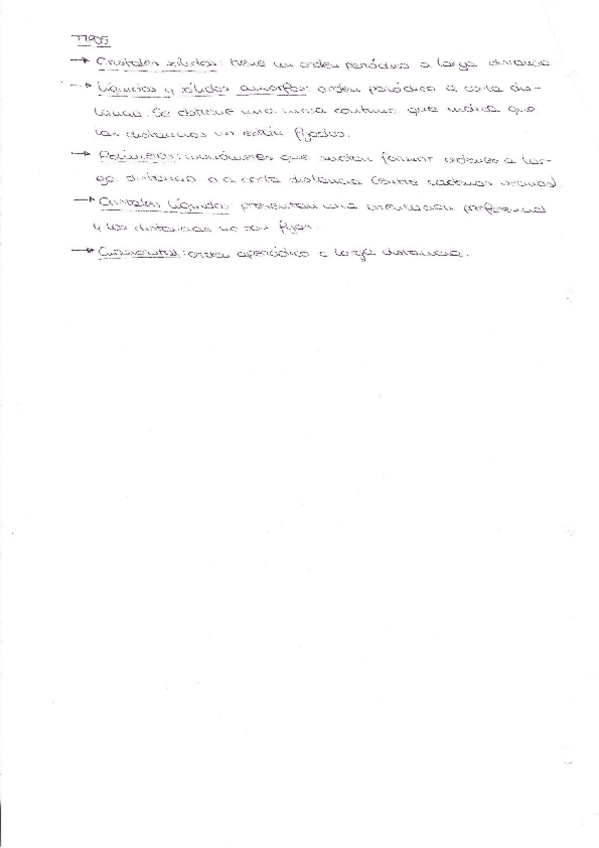 TIPOS
→ Cristales sólidos: tiene un orden periódico a larga distancia
→ Líquidos y sólidos amorfos: orden periódico a corta dis-
tancia. Se obtiene una curva continua que indica que
las distancias no están fijadas.
→ Polímeros: monómeros que suelen formar ordenes a lar-
ga distancia o a corta distancia (entre cadenas vecinas).
→ Cristales líquidos: presentan una orientación preferencial
y las distancias no son fijas.
→ Cuasicristal: orden aperiódico a larga distancia.